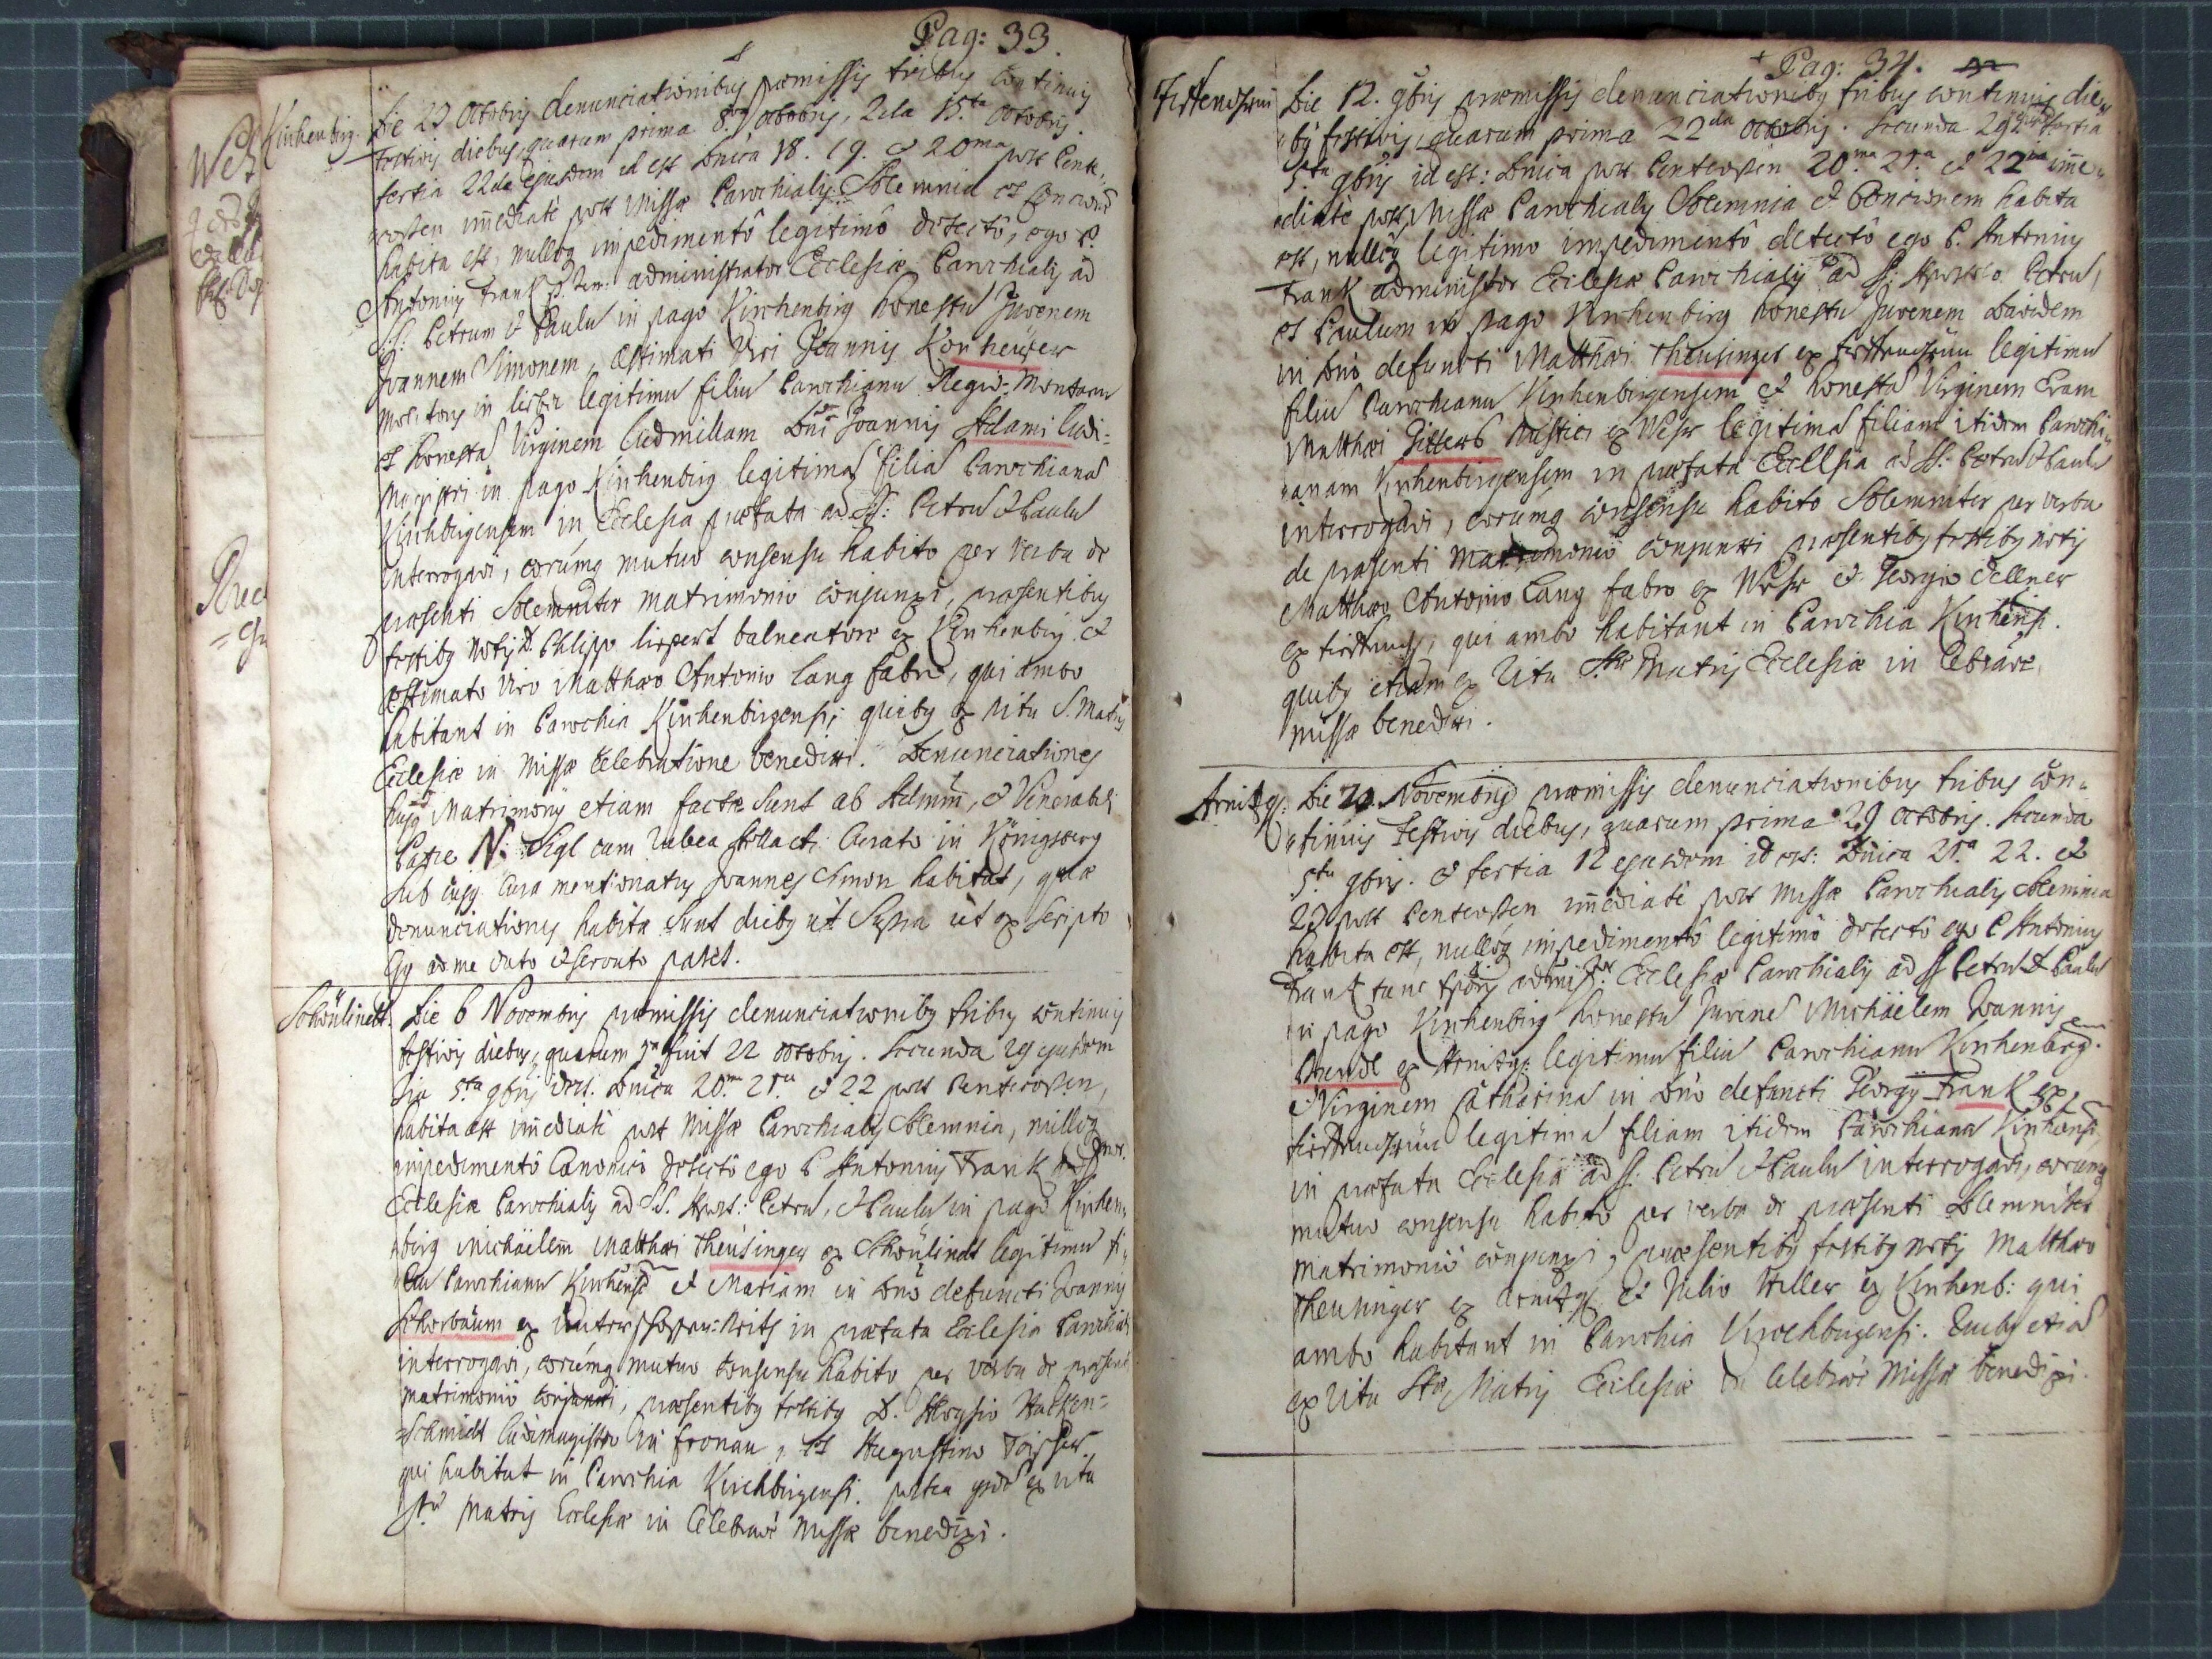 Pag: 33.
Kirchenbirg. Die 23 Octobris denunciationibus præmissis tribus continuis
festivis diebus, quarum prima 8. octobris, 2da 15ta octobris.
tertia 22da ejusdem id est Dnica 18. 19. & 20ma post Pente,
costen im̃ediatè post Missæ Parochialis Solemnia et
habita est, nulloq impedimentô legitimô detectô, ego P.
Antonius Frank p. tem: administrator Ecclesiæ Parochialis ad
S.S: Petrum & Paulũ in pago Kirchenbirg honestũ Juvenem
Joannem Simonem, Æstimati Viri Joannis Konheüser
in legitimũ filiũ Parochianũ Regio-Montanũ
et honestã Virginem Ludmillam Dni Joannis Adami Ludi=
Magistri in pago Kirchenbirg legitimã filiã Parochianã
Kirchbirgensem in Ecclesia præfata ad SS: Petrũ & Paulũ
interrogavi, eorumq mutuo consensu habito per verba de
præsenti Solemniter matrimonio conjunxi, præsentibus
testibq notis D. Philippo liepert balneatore ex Kirchenbirg &
Æstimato Viro Matthæo Antonio Lang fabro, qui ambo
habitant in Parochia Kirchenbirgensi, quibq ex ritu S. Matris
Ecclesiæ in Missæ Celebratione benedixi. Denunciationes
hujq Matrimonij etiam factæ sunt ab Admm, & Venerabili
Patre N: Sigl cum rubea stella Curato in Königsberg
sub cujq Cura mentionatus Joannes Simon habitat, quæ
denunciationes habitæ sunt diebq ut Supra ut ex scripto
à me dato & servato patet.
Schönlindt. Die 6 Novembris præmissis denunciationibq tribq continuis
festivis diebus, quarum 1ma fuit 22 octobris. Secunda 29 ejusdem
3ia 5ta 9bris id est. Dnica 20ma 21ma & 22 post Pentecosten,
habita est im̃ediatè post Missæ Parochialis Solemnia, nulloq
impedimentô Canonicô detectô ego P Antonius Frank
Ecclesiæ Parochialis ad S.S. Apost: Petrũ, & Paulũ in pago Kirchen,
birg Michäelem Matthæi Theüsinger ex Schönlindt legitimũ fi,
liũ Parochianũ Kirchens: & Mariam in Dnõ defuncti Joannis
Schorbaum ex in præfata Ecclesia Parochiali
interrogavi, eorumq mutuo consensu habito per verba de præsenti
matrimoniô conjunxi, præsentibq testibq D. Aloysio Hacken=
=schmidt ludimagistro in fronau, et Augustino
qui habitat in Parochia Kirchbirgensi. postea ex ritu
Stæ Matris Ecclesiæ in Celebraõe Missæ benedixi.
Pag: 34.
Die 12. 9bris præmissis denunciationibq tribus continuis die,
bq festivis, quarum prima 22da octobris. Secunda 29 tertia
5ta 9bris id est: Dnica post Pentecosten 20ma 21ma & 22da im̃e,
diatè post Missæ Parochialis Solemnia & Concionem habita
est, nulloq legitimo impedimentô detectô ego P. Antonius
Frank administor Ecclesiæ Parochialis ad S: Petrũ,
et Paulum in pago Kirchenbirg honestũ Juvenem Davidem
in Dnõ defuncti Matthæi Theüsinger ex legitimũ
filiũ Parochianũ Kirchenbirgensem & honestã Virginem Evam
Matthæi ex Wehr legitimã filiam itidem Parochi,
anam Kirchenbirgensem in præfata Ecclesia ad SS: Petrũ & Paulũ
interrogavi, eorumq consensu habito Solemniter per verba
de præsenti matrimoniô conjunxi præsentibq testibq notis
Matthæo Antonio Lang fabro ex Wehr & Georgio Dellner
ex qui ambo habitant in Parochia Kirchens.
quibq etiam ex Ritu Stæ Matris Ecclesiæ in Celebraõe
Missæ benedixi.
Arnitzg: Die Novembris præmissis denunciationibus tribus con,
,tinuis Festivis diebus, quarum prima 29 octobris. Secunda
5ta 9bris. & tertia 12 ejusdem id est: Dnica 21ma 22. et
23 post Pentecosten im̃ediatè post Missæ Parochialis Solemnia
habita est, nulloq impedimentô legitimô detectô ego P Antonius
Frank tunc tporis Ecclesiæ Parochialis ad SS Petrũ & Paulũ
in pago Kirchenbirg honestũ Juvenẽ Michäelem Joannis
ex Arnitzg: legitimũ filiũ Parochianũ Kirchenberg.
& Virginem Catharinã in Dnõ defuncti Georgij Frank ex
legitimã filiam itidem Parochianã Kirchens:
in præfata Ecclesia ad S: Petrũ & Paulũ interrogavi, eorumq
mutuo consensu habito per verba de præsenti Solemniter
matrimoniô conjunxi, præsentibq testibq notis Matthæo
Theusinger ex Arnitzg: & Julio Hiller ex Kirchenb: qui
ambo habitant in Parochia Kirchbirgensi. Quibq etiã
ex ritu Stæ Matris Ecclesiæ in Celebraõe Missæ benedixi.